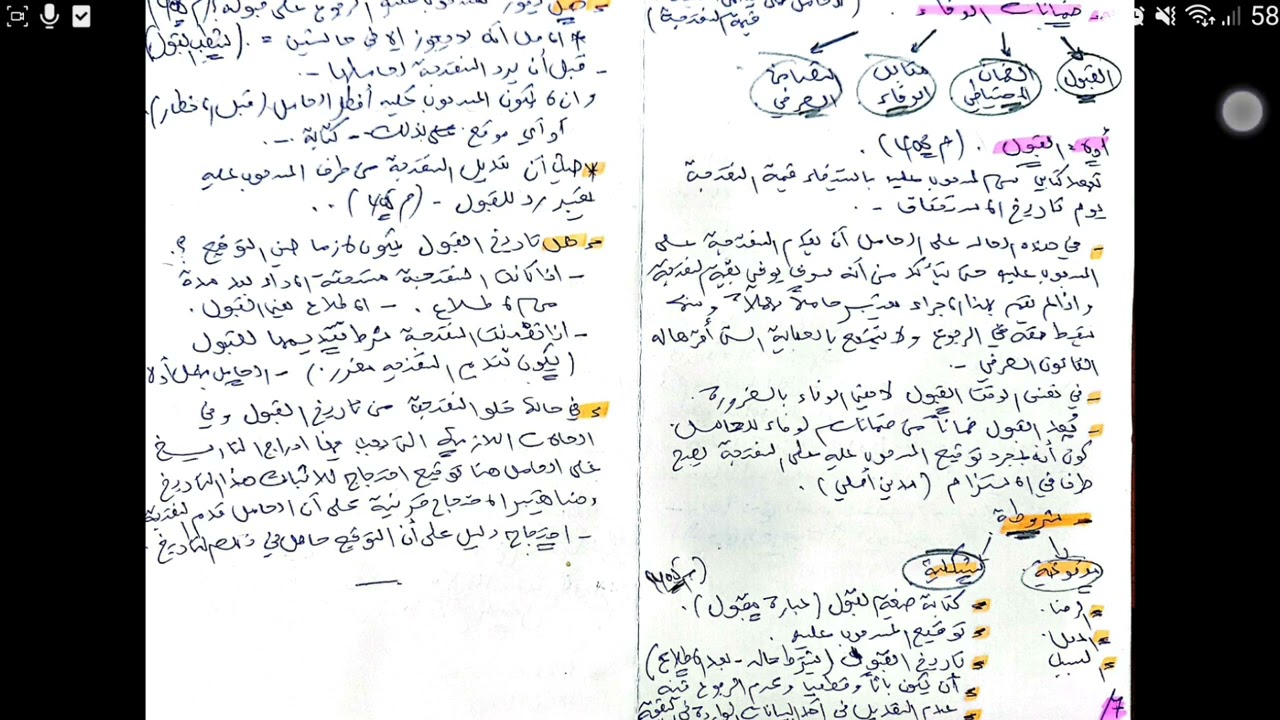 58
ضمانات الوفاء
القبول
الضمان الاحتياطي
مقابل الوفاء
التضامن الصرفي
أولا: القبول.
تعهد كتابي من المسحوب عليه باستيفاء قيمة السفتجة
يوم تاريخ الاستحقاق -.
- في هذه الحالة على الحامل أن يقدم السفتجة على
المسحوب عليه حتى يتأكد من أنه سوف يوفي بقيمة السفتجة
وإذا لم يقم بهذا الإجراء يعتبر حاملاً مهملاً ومنه
يسقط حقه في الرجوع ولا يتمتع بالحماية التي أقرها له
القانون الصرفي -.
- في نفس الوقت القبول لا يعني الوفاء بالضرورة.
- يُعد القبول ضماناً من ضمانات الوفاء للحامل.
كون أنه بمجرد توقيع المسحوب عليه على السفتجة يصبح
طرفا في الالتزام (مدين أصلي).
- شروطه
موضوعية
- الرضا.
- المحل.
- السبب
شكلية
- كتابة صيغة القبول (عبارة مقبول).
- توقيع المسحوب عليه.
- تاريخ القبول (يشترط حالة - بعد الاطلاع)
- أن يكون باتاً وقطعيا وعدم الرجوع فيه
- عدم التعديل في أحد البيانات الواردة في
7/
* الأصل أنه لا يجوز إلا في حالتين =. (لشطب القبول)
- قبل أن يرد السفتجة لحاملها -.
وان لا يكون المسحوب عليه أخطر الحامل (قبل الإخطار).
أو أي موقع بذلك - كتابة -.
* حيث أن تعديل السفتجة من طرف المسحوب عليه
يعتبر رد للقبول -
- هل تاريخ القبول يكون لازما حين التوقيع ؟
- اذا كانت السفتجة مستحقة الأداء بعد مدة
من الاطلاع. - الاطلاع يعني القبول.
- اذا تضمنت السفتجة شرط تقديمها للقبول
(يكون تقديم السفتجة مقرر.) -
- في حالة خلو السفتجة من تاريخ القبول وفي
الحالات اللازمة التي يجب فيها ادراج التاريخ
على الحامل هنا توقيع احتجاج لاثبات هذا التاريخ
وهنا يعتبر الاحتجاج قرينة على أن الحامل قدم السفتجة
- احتجاج دليل على أن التوقيع حاصل في ذلك التاريخ.